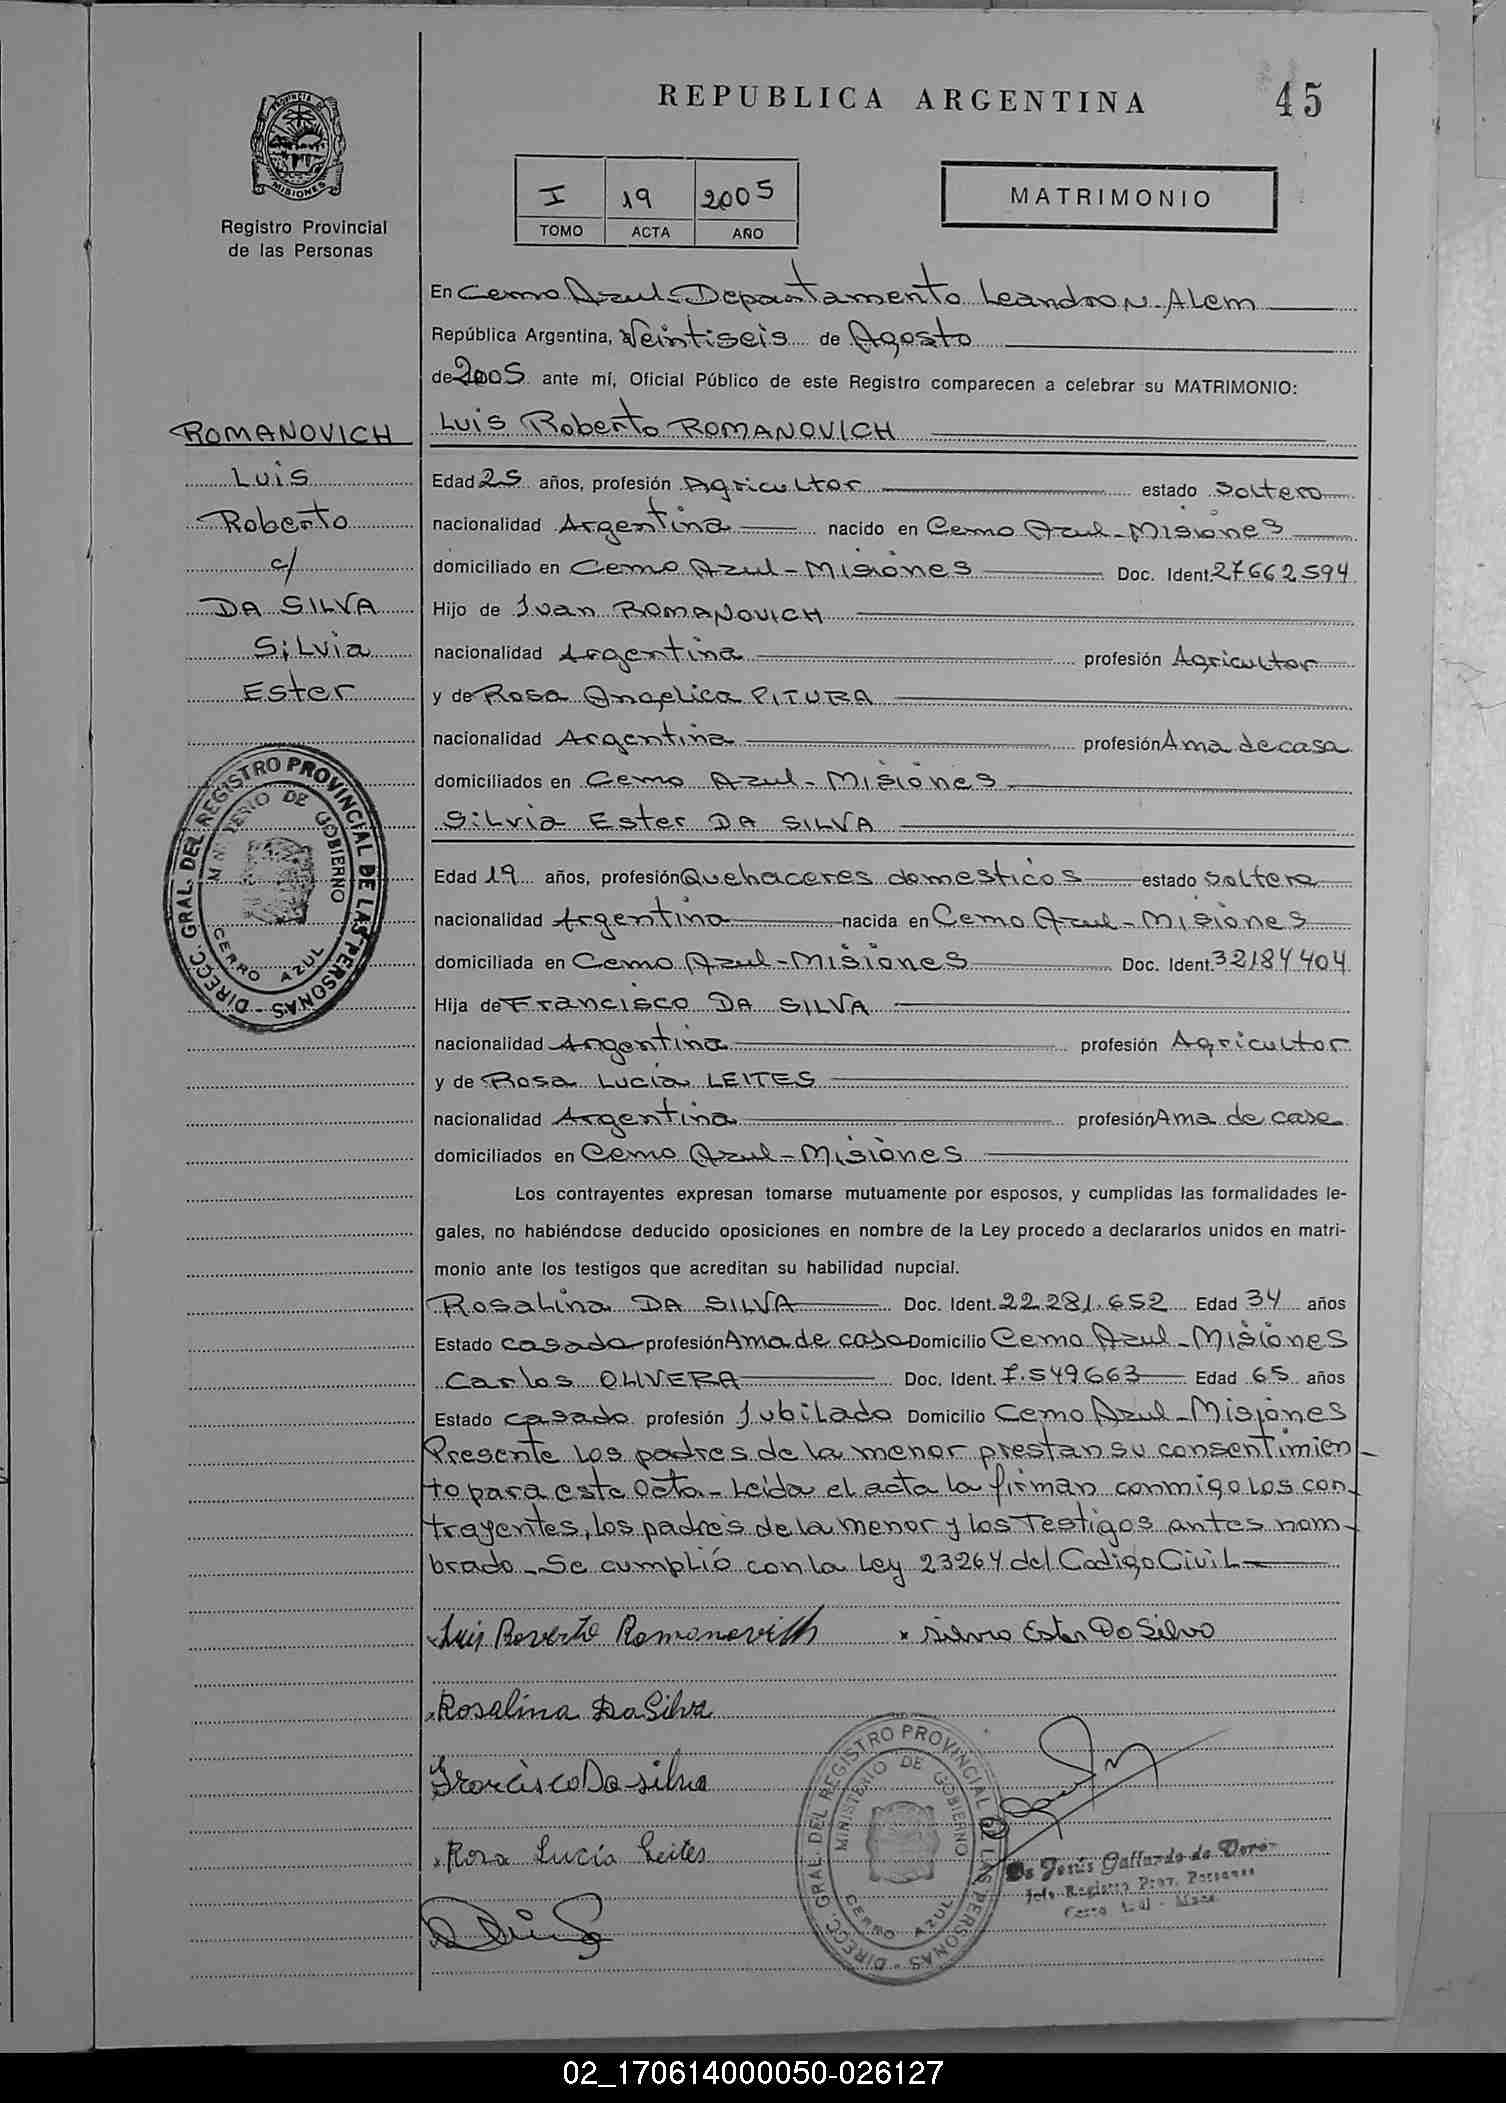 REPUBLICA ARGENTINA
45
PROVINCIA DE
MISIONES
Registro Provincial
de las Personas
I 19 2005
TOMO ACTA AÑO
MATRIMONIO
En Cerro Azul-Departamento Leandro N. Alem
República Argentina, Veintiseis de Agosto
de 2005 ante mí, Oficial Público de este Registro comparecen a celebrar su MATRIMONIO:
ROMANOVICH
Luis
Roberto
c/
DA SILVA
Silvia
Ester
Luis Roberto ROMANOVICH
Edad 25 años, profesión Agricultor estado Soltero
nacionalidad Argentina nacido en Cerro Azul-Misiones
domiciliado en Cerro Azul-Misiones Doc. Ident. 27662594
Hijo de Ivan ROMANOVICH
nacionalidad Argentina profesión Agricultor
y de Rosa Angelica PITURA
nacionalidad Argentina profesión Ama de casa
domiciliados en Cerro Azul-Misiones
Silvia Ester DA SILVA
Edad 19 años, profesión Quehaceres domesticos estado Soltera
nacionalidad Argentina nacida en Cerro Azul-Misiones
domiciliada en Cerro Azul-Misiones Doc. Ident. 32184404
Hija de Francisco DA SILVA
nacionalidad Argentina profesión Agricultor
y de Rosa Lucia LEITES
nacionalidad Argentina profesión Ama de casa
domiciliados en Cerro Azul-Misiones
Los contrayentes expresan tomarse mutuamente por esposos, y cumplidas las formalidades le-
gales, no habiéndose deducido oposiciones en nombre de la Ley procedo a declararlos unidos en matri-
monio ante los testigos que acreditan su habilidad nupcial.
Rosalina DA SILVA Doc. Ident. 22.281.652 Edad 34 años
Estado casada profesión Ama de casa Domicilio Cerro Azul-Misiones
Carlos OLIVERA Doc. Ident. 7.549663 Edad 65 años
Estado casado profesión Jubilado Domicilio Cerro Azul-Misiones
Presente los padres de la menor prestan su consentimien-
to para este acto- Leida el acta la firman conmigo los con-
trayentes, los padres de la menor y los Testigos antes nom-
brado- Se cumplió con la Ley 23264 del Codigo Civil
DIRECC. GRAL. DEL REGISTRO PROVINCIAL DE LAS PERSONAS
MINISTERIO DE GOBIERNO
CERRO AZUL
x Luis Roverto Romanovich x Silvia Ester Da Silva
x Rosalina Da Silva
Francisco Da silva
x Rosa Lucia Leites
DIRECC. GRAL. DEL REGISTRO PROVINCIAL DE LAS PERSONAS
MINISTERIO DE GOBIERNO
CERRO AZUL
Jesús Gallardo de
Jefe Registro Prov. Personas
Cerro Azul - Mnes.
02_170614000050-026127